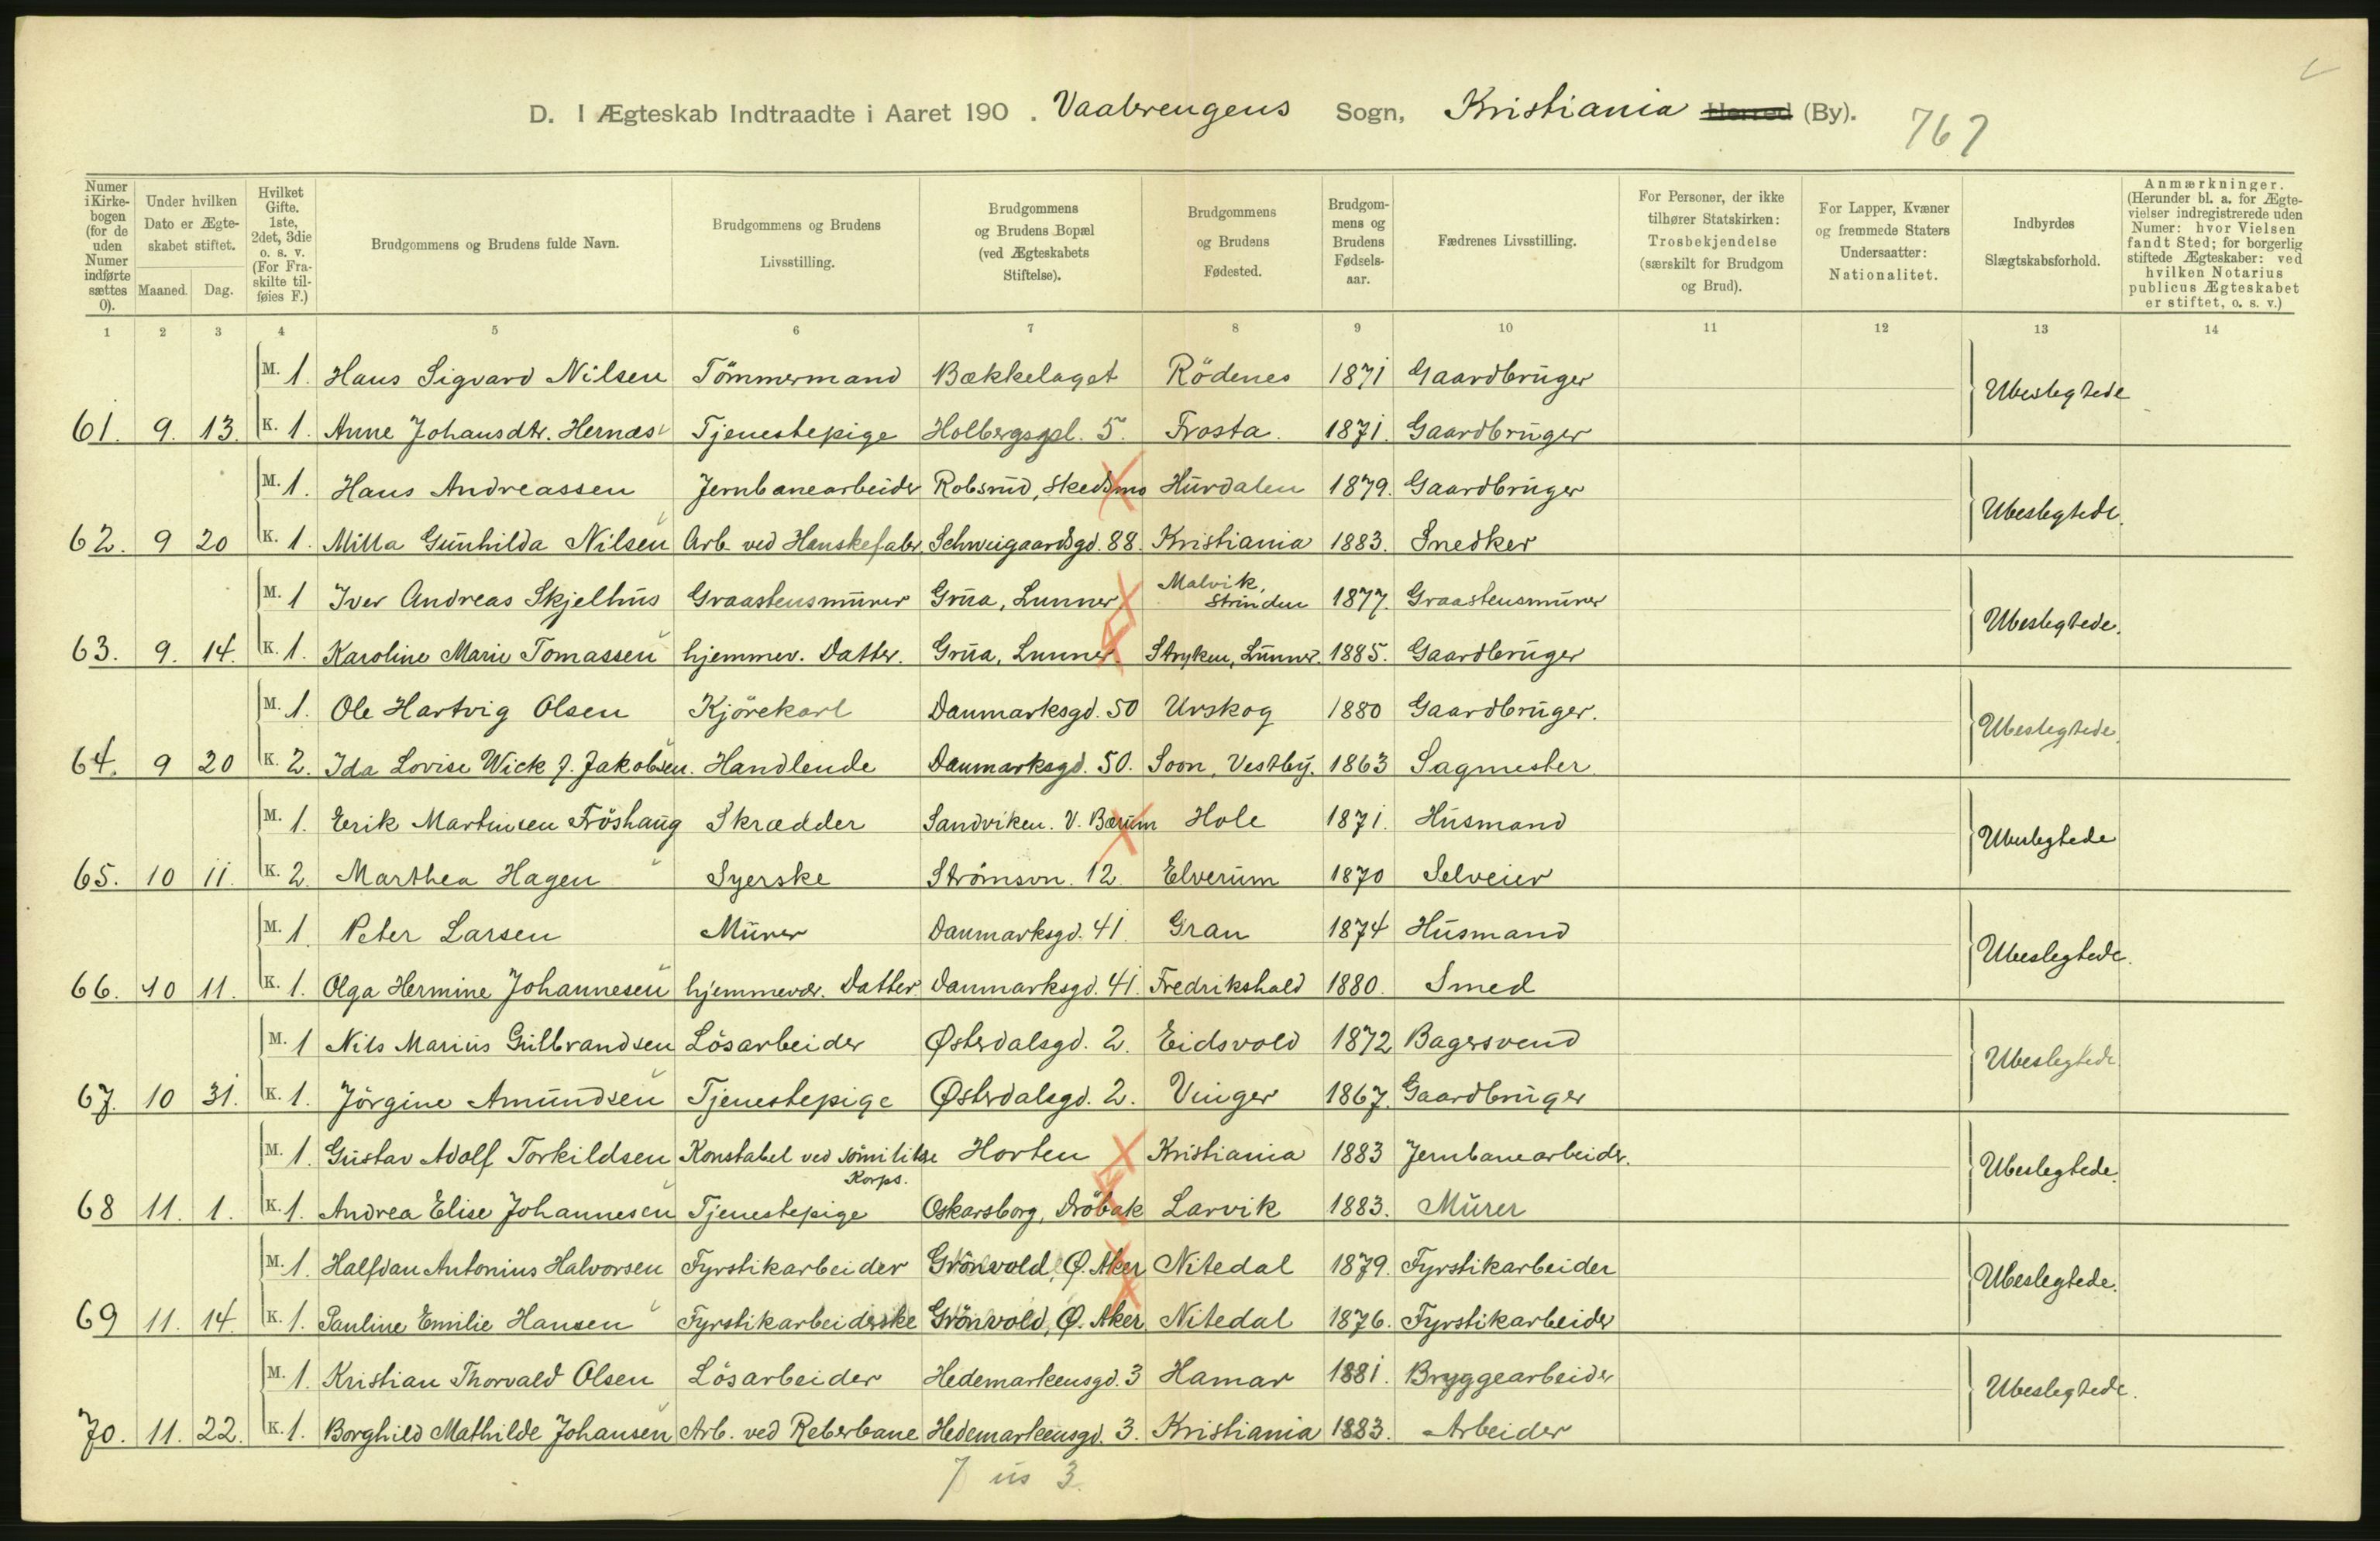 D. I Ægteskab Indtraadte i Aaret 190 . Vaalerengens Sogn, Kristiania Herred (By).
767
Numer i Kirke- bogen (for de uden Numer indførte sættes 0).
Under hvilken Dato er Ægte- skabet stiftet.
Maaned. Dag.
Hvilket Gifte. 1ste, 2det, 3die o. s. v. (For Fra- skilte til- føies F.)
Brudgommens og Brudens fulde Navn.
Brudgommens og Brudens Livsstilling.
Brudgommens og Brudens Bopæl (ved Ægteskabets Stiftelse).
Brudgommens og Brudens Fødested.
Brudgom- mens og Brudens Fødsels- aar.
Fædrenes Livsstilling.
For Personer, der ikke tilhører Statskirken: Trosbekjendelse (særskilt for Brudgom og Brud).
For Lapper, Kvæner og fremmede Staters Undersaatter: Nationalitet.
Indbyrdes Slægtskabsforhold.
Anmærkninger. (Herunder bl. a. for Ægte- vielser indregistrerede uden Numer: hvor Vielsen fandt Sted; for borgerlig stiftede Ægteskaber: ved hvilken Notarius publicus Ægteskabet er stiftet, o. s. v.)
1 2 3 4 5 6 7 8 9 10 11 12 13 14
M. 1. Hans Sigvard Nilsen Tömmermand Bækkelaget Rödenes 1871 Gaardbruger Ubeslegtede
61. 9. 13. K. 1. Anne Johansdtr. Hernæs Tjenestepige Holbergspl. 5. Frosta. 1871. Gaardbruger
M. 1. Hans Andreassen Jernbanearbeider Robsrud, Skedsmo Hurdalen 1879. Gaardbruger Ubeslegtede.
62. 9 20 K. 1. Milla Gunhilda Nilsen Arb. ved Hanskefabr. Schweigaardsgd. 88. Kristiania 1883. Snedker
M. 1 Iver Andreas Skjelhus Graastensmurer Grua, Lunner Malvik, Strinden 1877. Graastensmurer Ubeslegtede.
63. 9. 14. K. 1. Karoline Marie Tomassen hjemmev. Datter. Grua, Lunner. Stryken, Lunner. 1885. Gaardbruger
M. 1. Ole Hartvig Olsen Kjörekarl Danmarksgd. 50 Urskog 1880 Gaardbruger. Ubeslegtede.
64. 9 20 K. 2. Ida Lovise Wick f. Jakobsen. Handlende Danmarksgd. 50. Soon, Vestby. 1863 Sagmester.
M. 1. Erik Martinsen Fröshaug Skrædder Sandviken. V. Bærum Hole 1871. Husmand Ubeslegtede
65. 10 11. K. 2. Marthea Hagen Syerske Strömsvn. 12. Elverum 1870 Selveier
M. 1. Peter Larsen Murer Danmarksgd. 41. Gran 1874 Husmand Ubeslegtede.
66. 10 11. K. 1. Olga Hermine Johannesen hjemmevær. Datter. Danmarksgd. 41. Fredrikshald 1880. Smed
M. 1 Nils Marius Gulbrandsen Lösarbeider Østerdalsgd. 2. Eidsvold 1872 Bagersvend Ubeslegtede
67. 10 31. K. 1. Jörgine Amundsen Tjenestepige Østerdalsgd. 2. Vinger 1867. Gaardbruger
M. 1. Gustav Adolf Torkildsen Konstabel ved sömilitære Korps. Horten Kristiania 1883 Jernbanearbeider. Ubeslegtede.
68 11. 1. K. 1. Andrea Elise Johannesen Tjenestepige Oskarsborg, Dröbak Larvik 1883. Murer
M. 1. Halfdan Antonius Halvorsen Fyrstikarbeider Grönvold, Ø. Aker Nitedal 1879. Fyrstikarbeider Ubeslegtede.
69 11. 14. K. 1. Pauline Emilie Hansen Fyrstikarbeiderske Grönvold, Ø. Aker. Nitedal 1876. Fyrstikarbeider
M. 1. Kristian Thorvald Olsen Lösarbeider Hedemarkensgd. 3 Hamar 1881. Bryggearbeider Ubeslegtede.
70. 11. 22. K. 1. Borghild Mathilde Johansen Arb. ved Reberbane Hedemarkensgd. 3. Kristiania 1883. Arbeider
7 us 3.